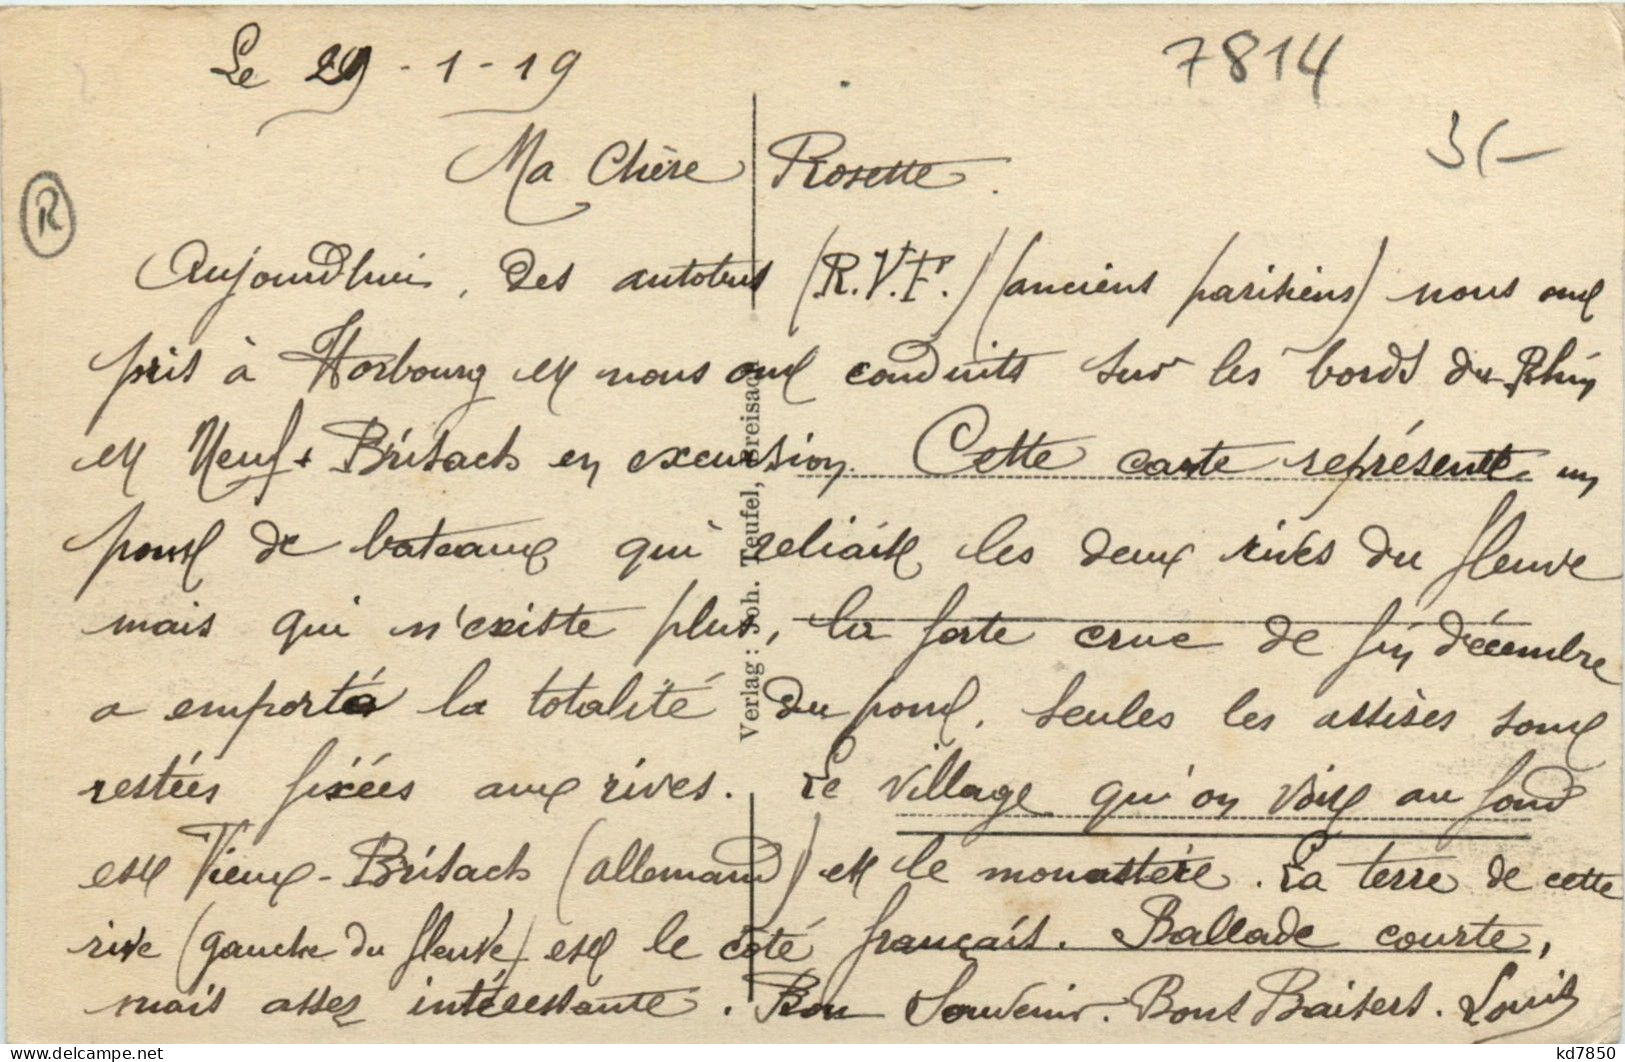 Le 29-1-19
7814
Ma Chère Rosette.
R
Aujourd'hui, des autobus (R.V.F.) (anciens parisiens) nous ont
pris à Horbourg et nous ont conduits sur les bords du Rhin
et Neuf-Brisach en excursion. Cette carte représente un
pont de bateaux qui reliait les deux rives du fleuve
mais qui n'existe plus, la forte crue de fin décembre
a emporté la totalité du pont. Seules les assises sont
restées fixées aux rives. Le village qu'on voit au fond
est Vieux-Brisach (allemand) et le monastère. La terre de cette
rive (gauche du fleuve) est le côté français. Ballade courte,
mais assez intéressante. Bon Souvenir. Bons Baisers. Louis
Verlag: Joh. Teufel, Breisach
kd7850